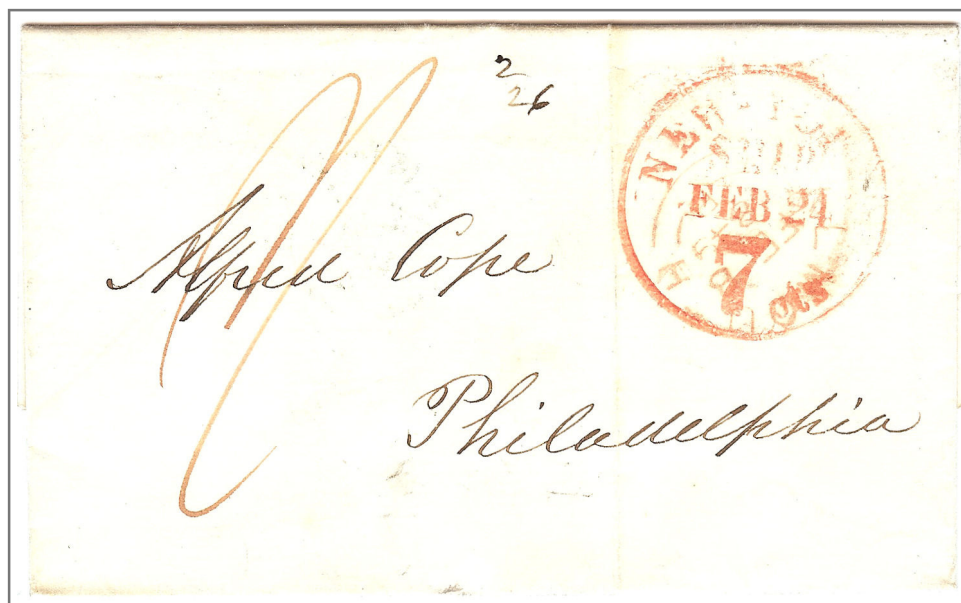 2
26
NEW-YO
SHIP
FEB 24
7
cts
Alfred Cope
Philadelphia